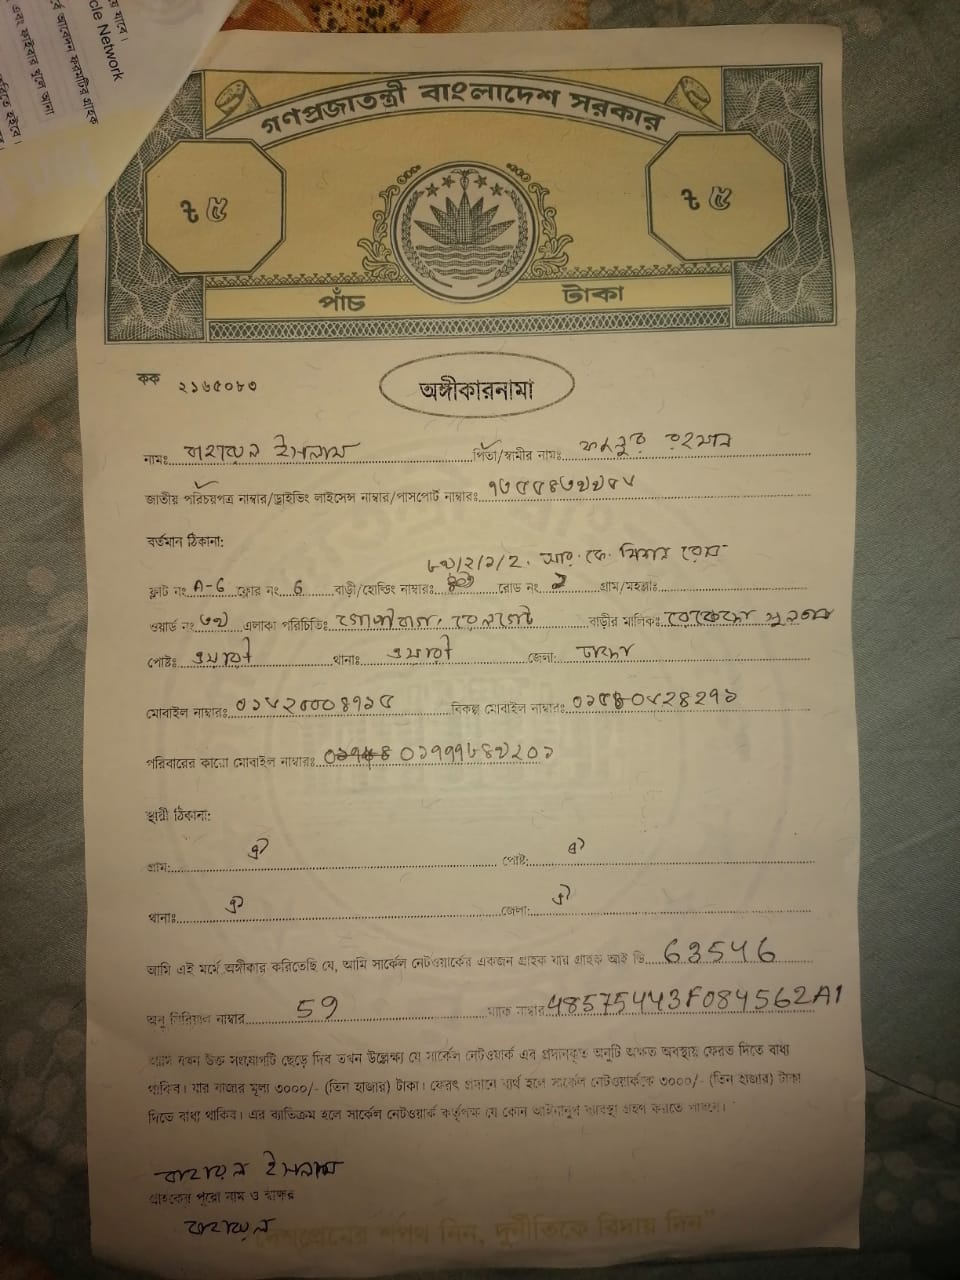 যে যাবে।
cle Network
র্বে আবেদন ফরমটির গ্রাহক
এবং ফাইবার খুলে আনা
রিতে হইবে।
গণপ্রজাতন্ত্রী বাংলাদেশ সরকার
৳ ৫
৳ ৫
পাঁচ টাকা
কক ২১৬৫০৮৩
অঙ্গীকারনামা
নামঃ ইসলাম পিতা/স্বামীর নামঃ রহমান
জাতীয় পরিচয়পত্র নাম্বার/ড্রাইভিং লাইসেন্স নাম্বার/পাসপোর্ট নাম্বারঃ
বর্তমান ঠিকানা:
আর. কে. মিশন রোড
ফ্লাট নং A-6 ফ্লোর নং 6 বাড়ী/হোল্ডিং নাম্বারঃ রোড নং গ্রাম/মহল্লাঃ
ওয়ার্ড নং এলাকা পরিচিতিঃ গোপীবাগ, রেলগেট বাড়ীর মালিকঃ সুলতানা
পোষ্টঃ ওয়ারী থানাঃ ওয়ারী জেলা: ঢাকা
মোবাইল নাম্বারঃ বিকল্প মোবাইল নাম্বারঃ
পরিবারের কারো মোবাইল নাম্বারঃ
স্থায়ী ঠিকানা:
গ্রাম: ঐ পোষ্ট: ঐ
থানাঃ ঐ জেলা: ঐ
আমি এই মর্মে অঙ্গীকার করিতেছি যে, আমি সার্কেল নেটওয়ার্কের একজন গ্রাহক যার গ্রাহক আই ডি 63546
অনু সিরিয়াল নাম্বার 59 ম্যাক নাম্বার 48575443F084562A1
আমি যখন উক্ত সংযোগটি ছেড়ে দিব তখন উল্লেক্ষ্য যে সার্কেল নেটওয়ার্ক এর প্রদানকৃত অনুটি অক্ষত অবস্থায় ফেরত দিতে বাধ্য
থাকিব। যার বাজার মূল্য ৩০০০/- (তিন হাজার) টাকা। ফেরৎ প্রদানে ব্যর্থ হলে সার্কেল নেটওয়ার্ককে ৩০০০/- (তিন হাজার) টাকা
দিতে বাধ্য থাকিব। এর ব্যতিক্রম হলে সার্কেল নেটওয়ার্ক কর্তৃপক্ষ যে কোন আইনানুগ ব্যবস্থা গ্রহণ করতে পারবে।
ইসলাম
গ্রাহকের পূরো নাম ও স্বাক্ষর
"দেশপ্রেমের শপথ নিন, দুর্নীতিকে বিদায় দিন"